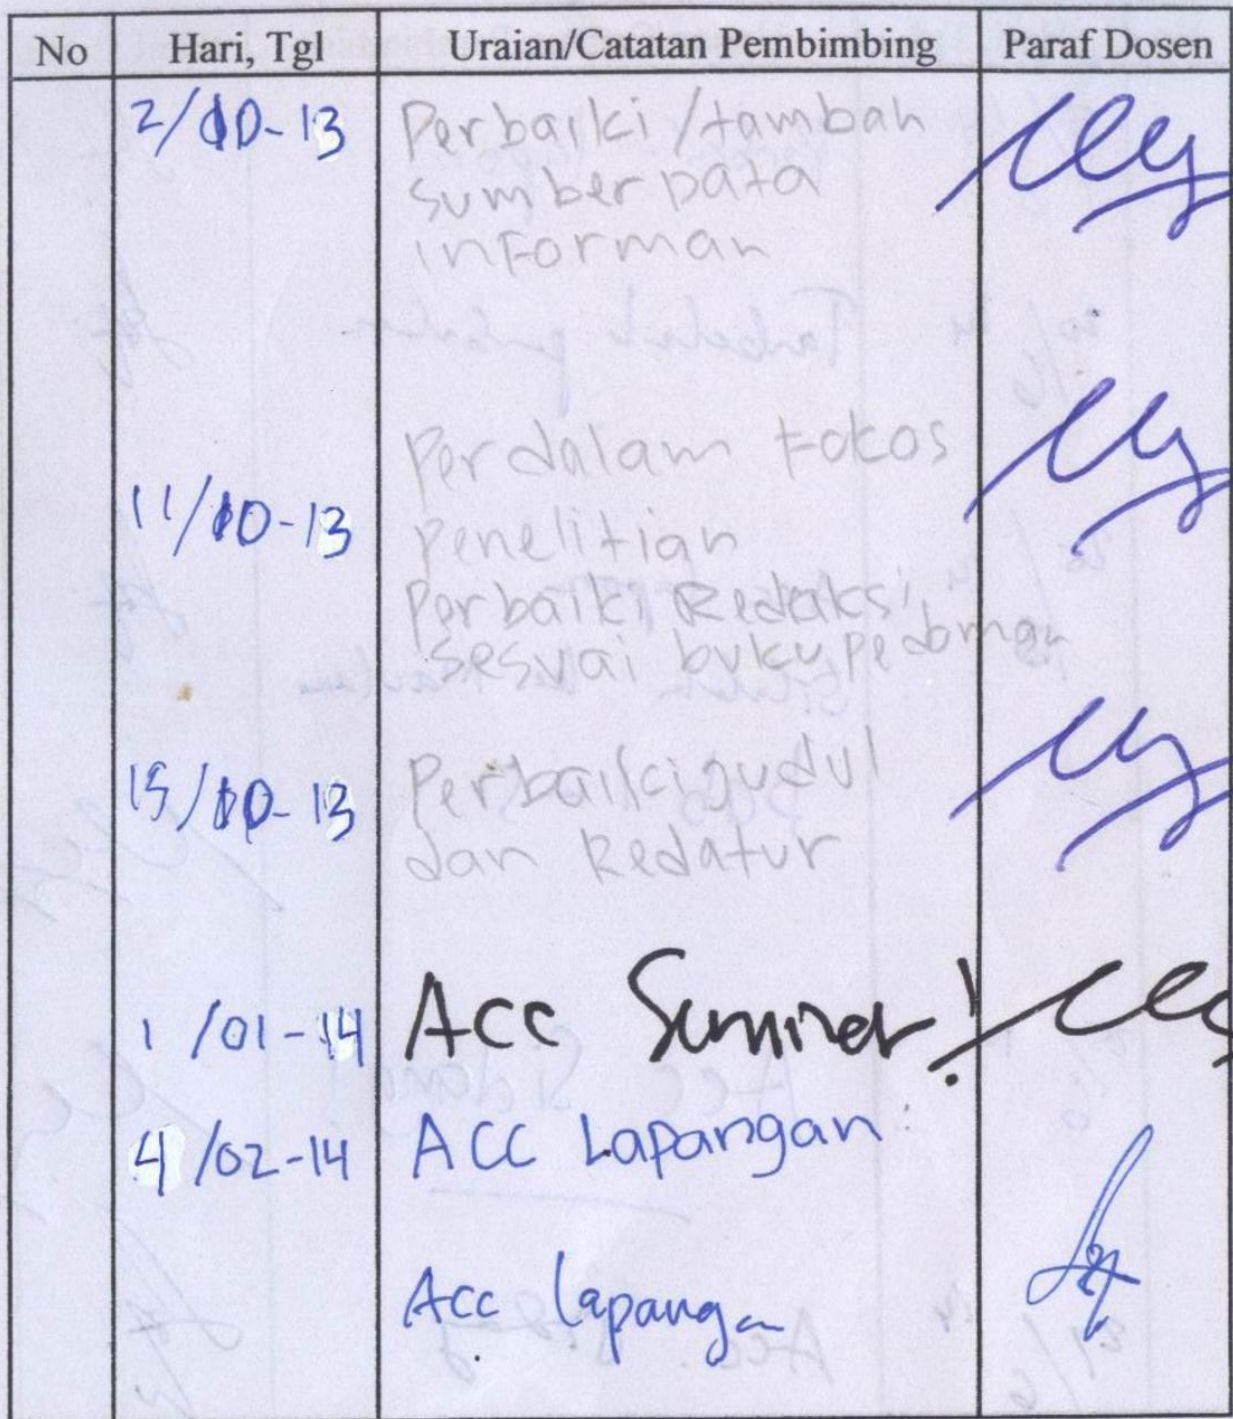 No Hari, Tgl Uraian/Catatan Pembimbing Paraf Dosen
2/10-13 Perbaiki/tambah
sumber Data
informan
Perdalam Fokos
11/10-13 penelitian
Perbaiki Redaksi
sesuai buku pedoman
15/10-13 Perbaiki judul
dan Redatur
1/01-14 Acc Seminar!
4/02-14 ACC Lapangan
Acc lapangan